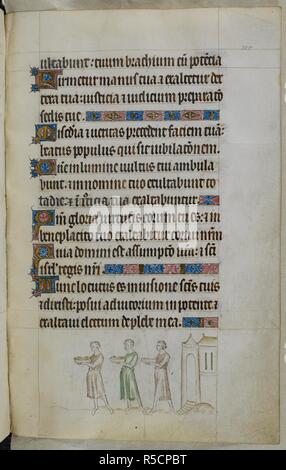 ultabunt: tuum brachium cũ potẽcia
Firmetur manus tua et exaltetur dex
tera tua: iusticia et iudicium preparatio
sedis tue.
Mĩa et veritas precedent faciem tuã:
beatus populus qui scit iubilatõnem.
Dñe in lumine vultus tui ambula
bunt: in nomine tuo exultabunt to
ta die: et in tua exaltabuntur
Qm̃ gloria virtutis eorum tu es: et in
beneplacito tuo exaltabitur cornu nrm̃
Quia domini est assumptõ nrã: et sc̃i
israel regis nrĩ
Tunc locutus es in visione sc̃is tuis
et dixisti: posui adiutorium in potente et
exaltavi electum de plebe mea.
alamy
Image ID: R5CPBT
www.alamy.com